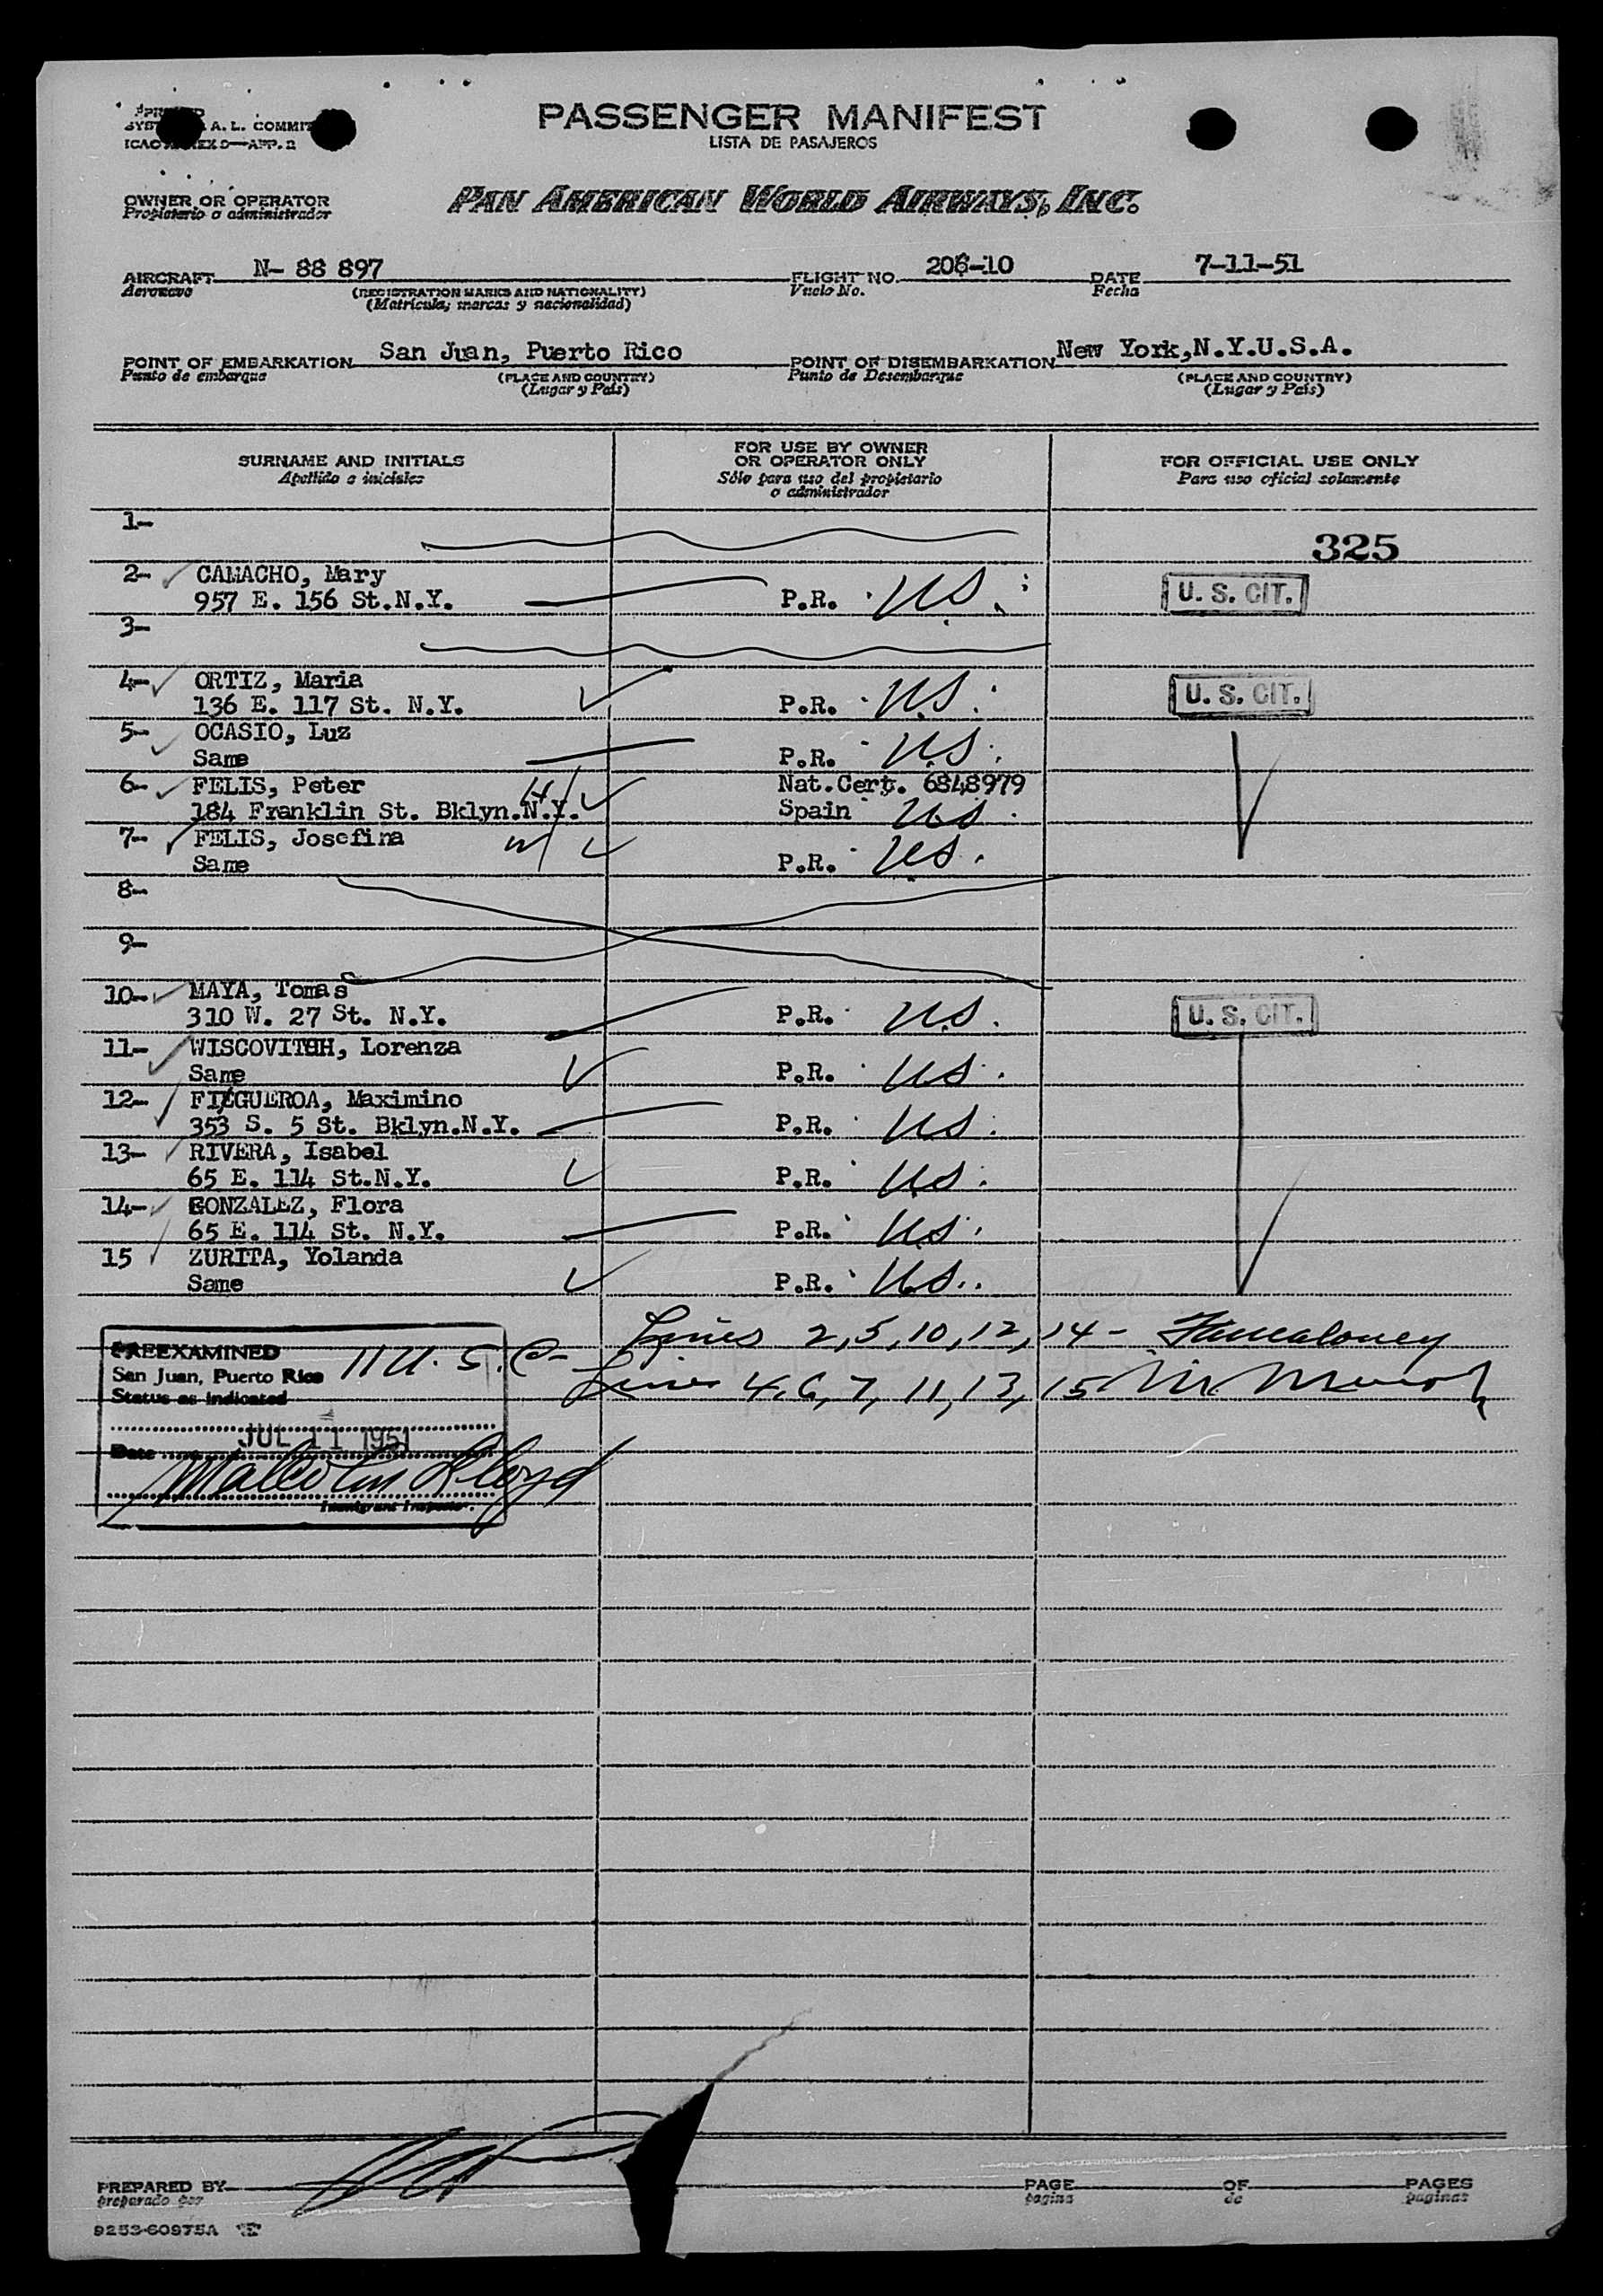 A. L. COMMIT
PASSENGER MANIFEST
LISTA DE PASAJEROS
OWNER OR OPERATOR
Propietario o administrador
PAN AMERICAN WORLD AIRWAYS, INC.
AIRCRAFT N- 88 897 FLIGHT NO. 206-10 DATE 7-11-51
Aeronave (REGISTRATION MARKS AND NATIONALITY) Vuelo No. Fecha
(Matrícula; marcas y nacionalidad)
POINT OF EMBARKATION San Juan, Puerto Rico POINT OF DISEMBARKATION New York,N.Y.U.S.A.
Punto de embarque (PLACE AND COUNTRY) Punto de Desembarque (PLACE AND COUNTRY)
(Lugar y País) (Lugar y País)
SURNAME AND INITIALS FOR USE BY OWNER OR OPERATOR ONLY FOR OFFICIAL USE ONLY
Apellido e iniciales Sólo para uso del propietario o administrador Para uso oficial solamente
1-
325
2- CAMACHO, Mary
957 E. 156 St.N.Y. P.R. US. U. S. CIT.
3-
4- ORTIZ, Maria
136 E. 117 St. N.Y. P.R. US. U. S. CIT.
5- OCASIO, Luz
Same P.R. US.
6- FELIS, Peter H/ Nat.Cert. 6848979
184 Franklin St. Bklyn.N.Y. Spain US.
7- FELIS, Josefina W/
Same P.R. US.
8-
9-
10- MAYA, Tomas
310 W. 27 St. N.Y. P.R. US. U. S. CIT.
11- WISCOVITCH, Lorenza
Same P.R. US.
12- FIGUEROA, Maximino
353 S. 5 St. Bklyn.N.Y. P.R. US.
13- RIVERA, Isabel
65 E. 114 St.N.Y. P.R. US.
14- GONZALEZ, Flora
65 E. 114 St. N.Y. P.R. US.
15 ZURITA, Yolanda
Same P.R. US.
Lines 2,5,10,12,14-
PREEXAMINED 11 U.S.C-
San Juan, Puerto Rico
Lines 4,6,7,11,13,15
Status as indicated
Date JUL 11 1951
Malcolm Lloyd
Immigrant Inspector.
PREPARED BY PAGE OF PAGES
preparado por pagina de paginas
9253-60975A